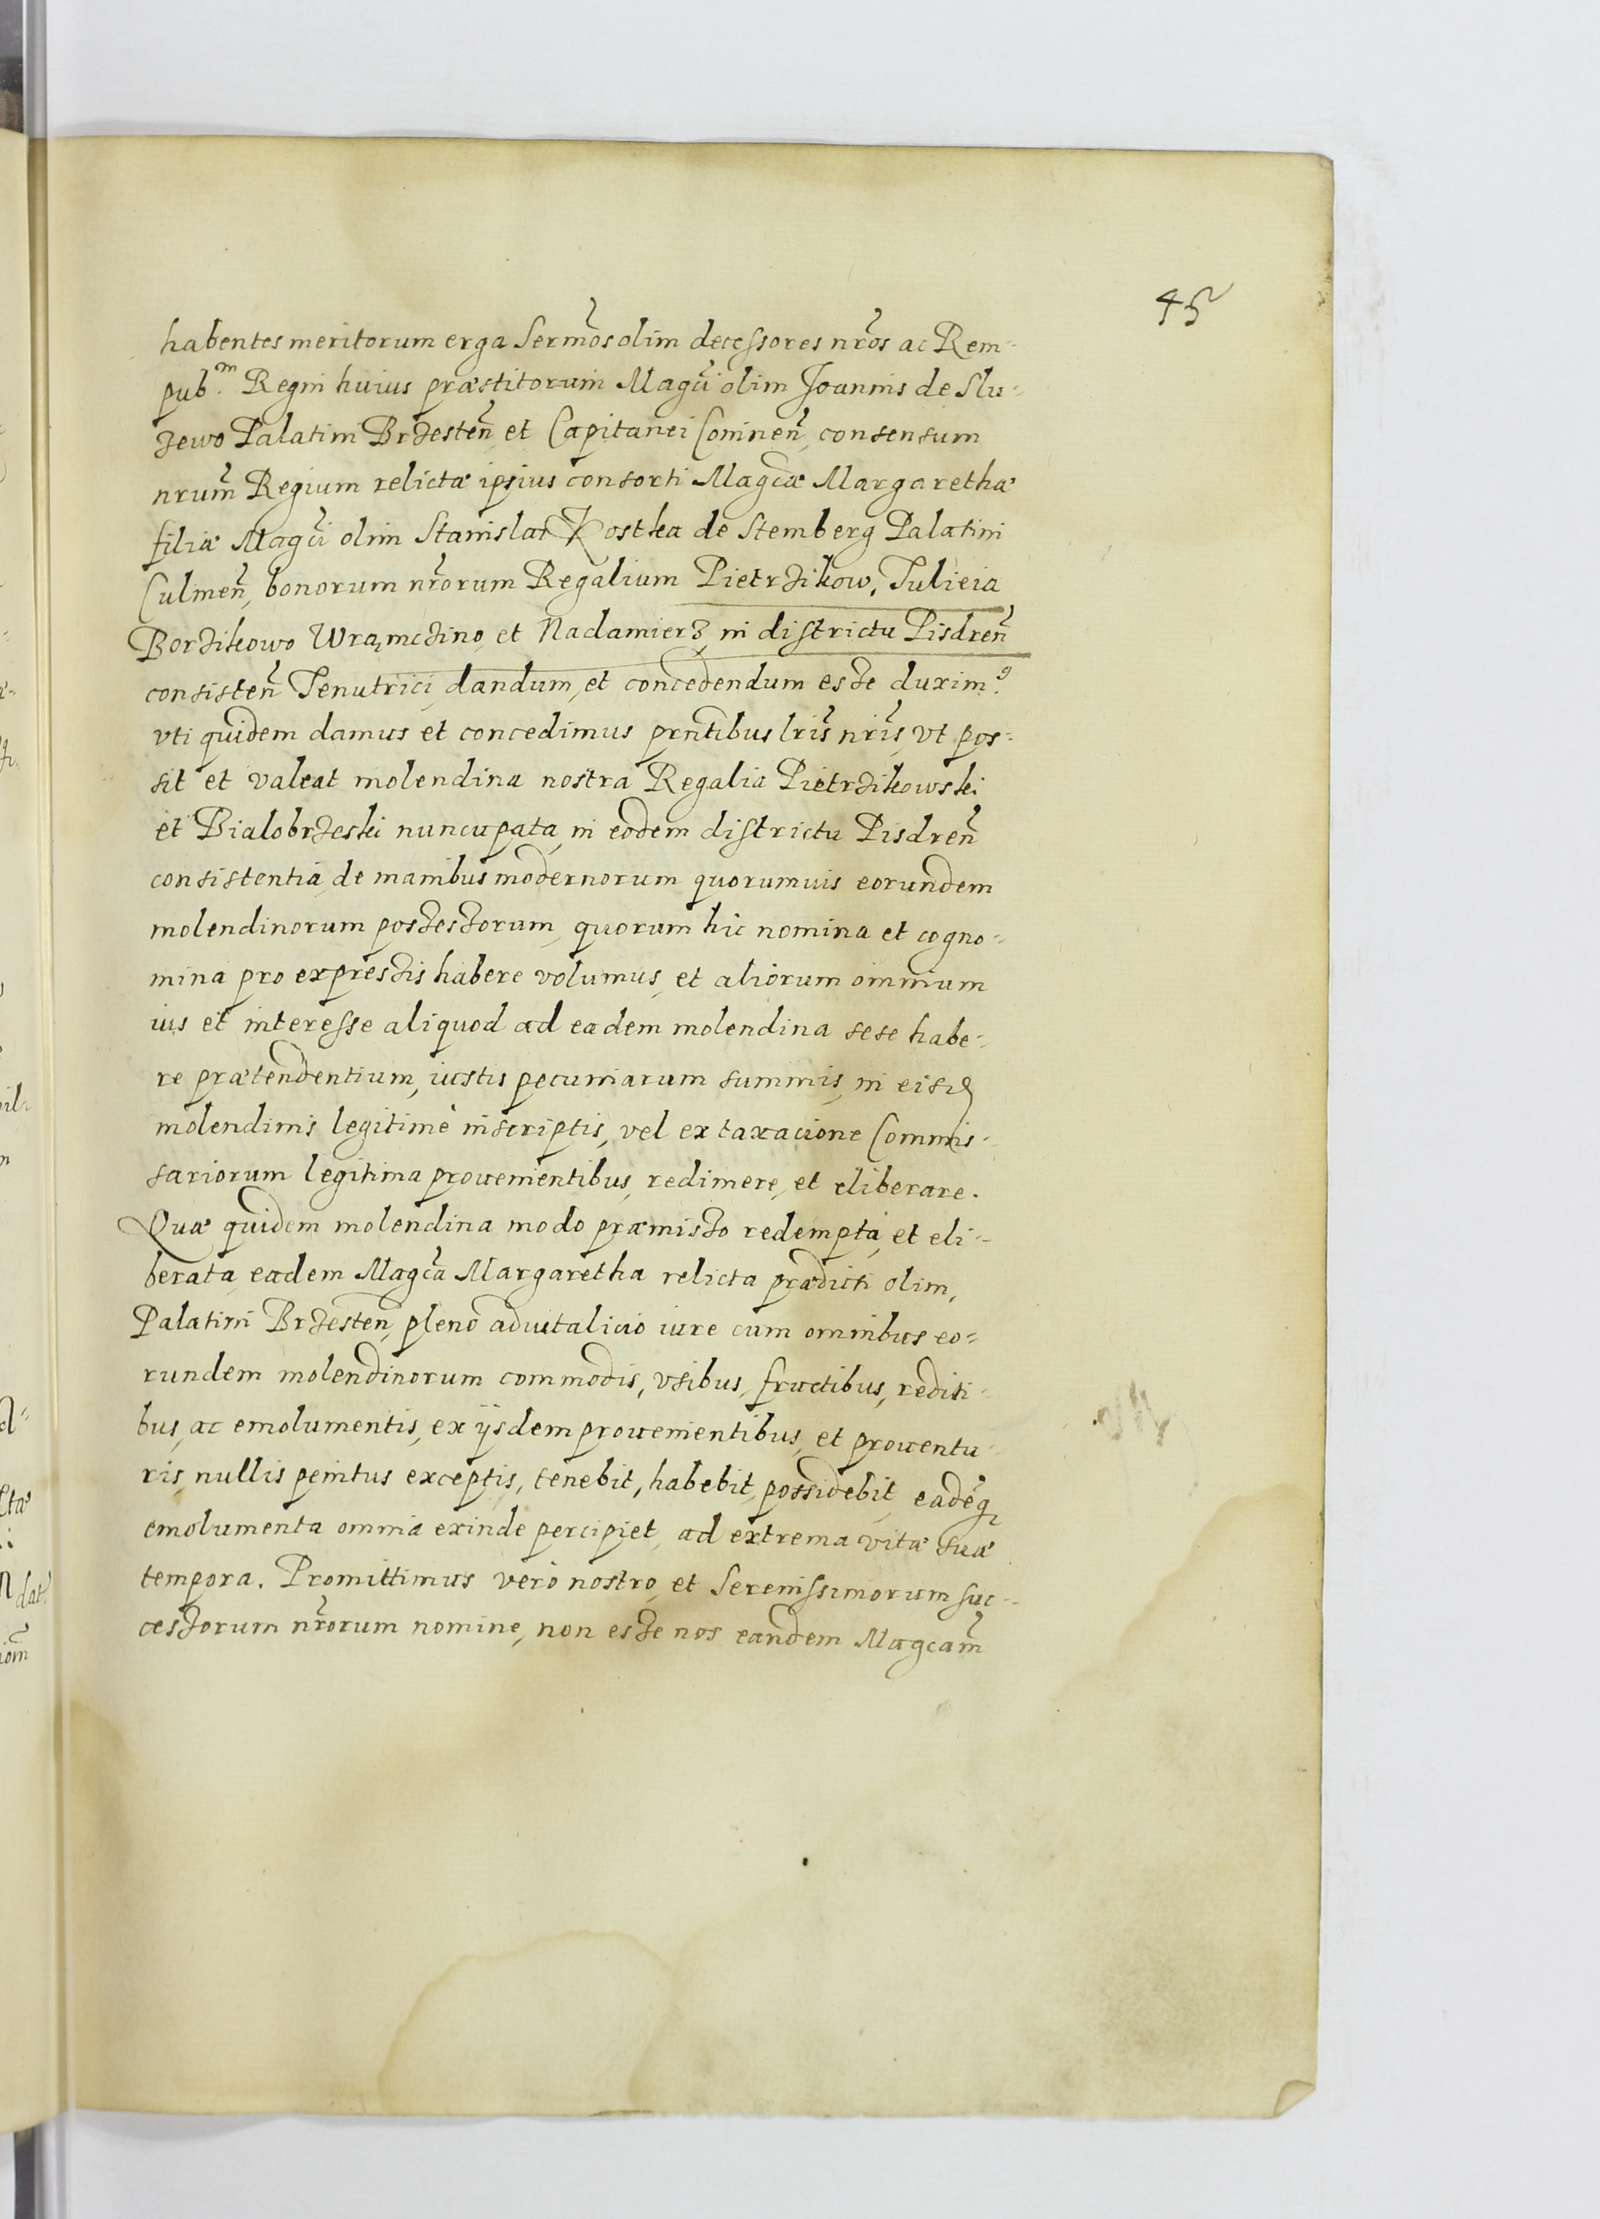 45
habentes meritorum erga Sermos olim decessores nros ac Rem-
pub.m Regni huius præstitorum Magci olim Joannis de Slu-
zewo Palatini Brzesten, et Capitanei Coninen, consensum
nrum Regium relictæ ipsius consorti Magcæ Margarethæ
filiæ Magci olim Stanislai Kostka de Stemberg Palatini
Culmen, bonorum nrorum Regalium Pietrzikow, Tulieia
Borzikowo Wrąmczino, et Nadamierz, in districtu Pisdren
consisten Tenutrici, dandum, et concedendum esse duxim9.
vti quidem damus et concedimus prntibus lris nris, vt pos-
sit et valeat molendina nostra Regalia Pietrzikowski
et Bialobrzeski nuncupata, in eodem districtu Pisdren
consistentia, de manibus modernorum quorumuis eorundem
molendinorum possessorum, quorum hic nomina et cogno-
mina pro expressis habere volumus, et aliorum omnium
ius et interesse aliquod ad eadem molendina sese habe-
re prætendentium, iustis pecuniarum summis, in eisd
molendinis legitimè inscriptis, vel ex taxacione Commis-
sariorum legitima prouenientibus, redimere, et eliberare.
Quæ quidem molendina modo præmisso redempta, et eli-
berata, eadem Magca Margaretha relicta prædicti olim,
Palatini Brzesten, pleno aduitalicio iure cum omnibus eo-
rundem molendinorum commodis, vsibus, fructibus, rediti-
bus, ac emolumentis, ex ijsdem prouenientibus, et prouentu-
ris, nullis penitus exceptis, tenebit, habebit, possidebit, eademq
emolumenta omnia exinde percipiet, ad extrema vitæ suæ
tempora. Promittimus verò nostro, et Serenissimorum suc-
cessorum nrorum nomine, non esse nos eandem Magcam